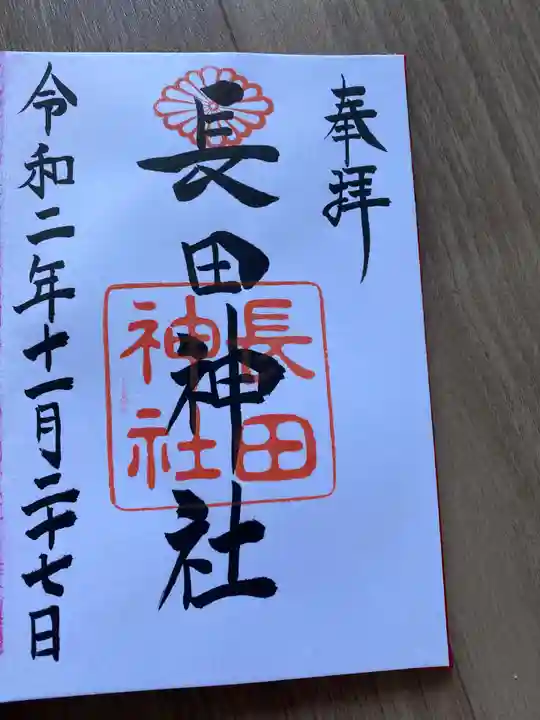 奉拝
長田神社
長田
神社
令和二年十一月二十七日